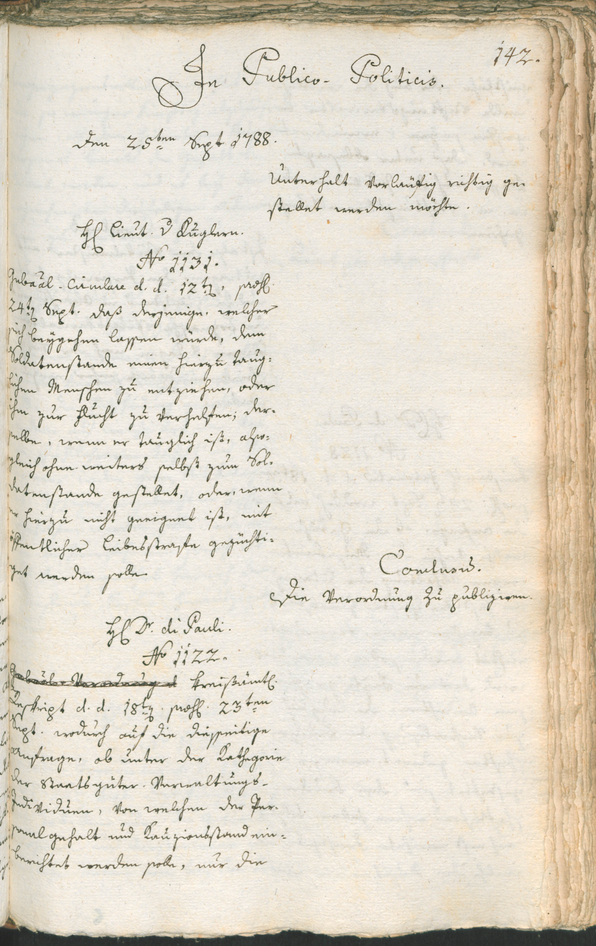 142.
In Publico-Politicis.
Den 25ten Sept 1788.
Unterhalt vorläufig richtig ge-
stellet werden möchte.
H Lieut. v Kuglern.
No 1131.
Gubaal-Circulare d. d. 12t, præs
24t Sept. daß derjenige, welcher
sich beygehen lassen würde, dem
Soldatenstande einen hierzu taug-
lichen Menschen zu entziehen, oder
ihm zur Flucht zu verhelfen; der-
selbe, wenn er tauglich ist, also-
gleich ohne weiters selbst zum Sol-
datenstande gestellet, oder, wenn
er hierzu nicht geeignet ist, mit
öffentlicher Leibsstrafe gezüchti-
get werden solle.
Conclusum.
Die Verordnung zu publiziren.
H Dr. di Pauli.
No 1122.
Gubaal-Verordnung d kreisämtl
Reskript d. d. 18t, præs 23ten
Sept. wodurch auf die diesseitige
Anfrage, ob unter der Kathegorie
der Staatsgüter-Verwaltungs-
Individuen, von welchen der Per-
sonal gehalt und Kauzionsstand ein-
berichtet werden solle, nur die